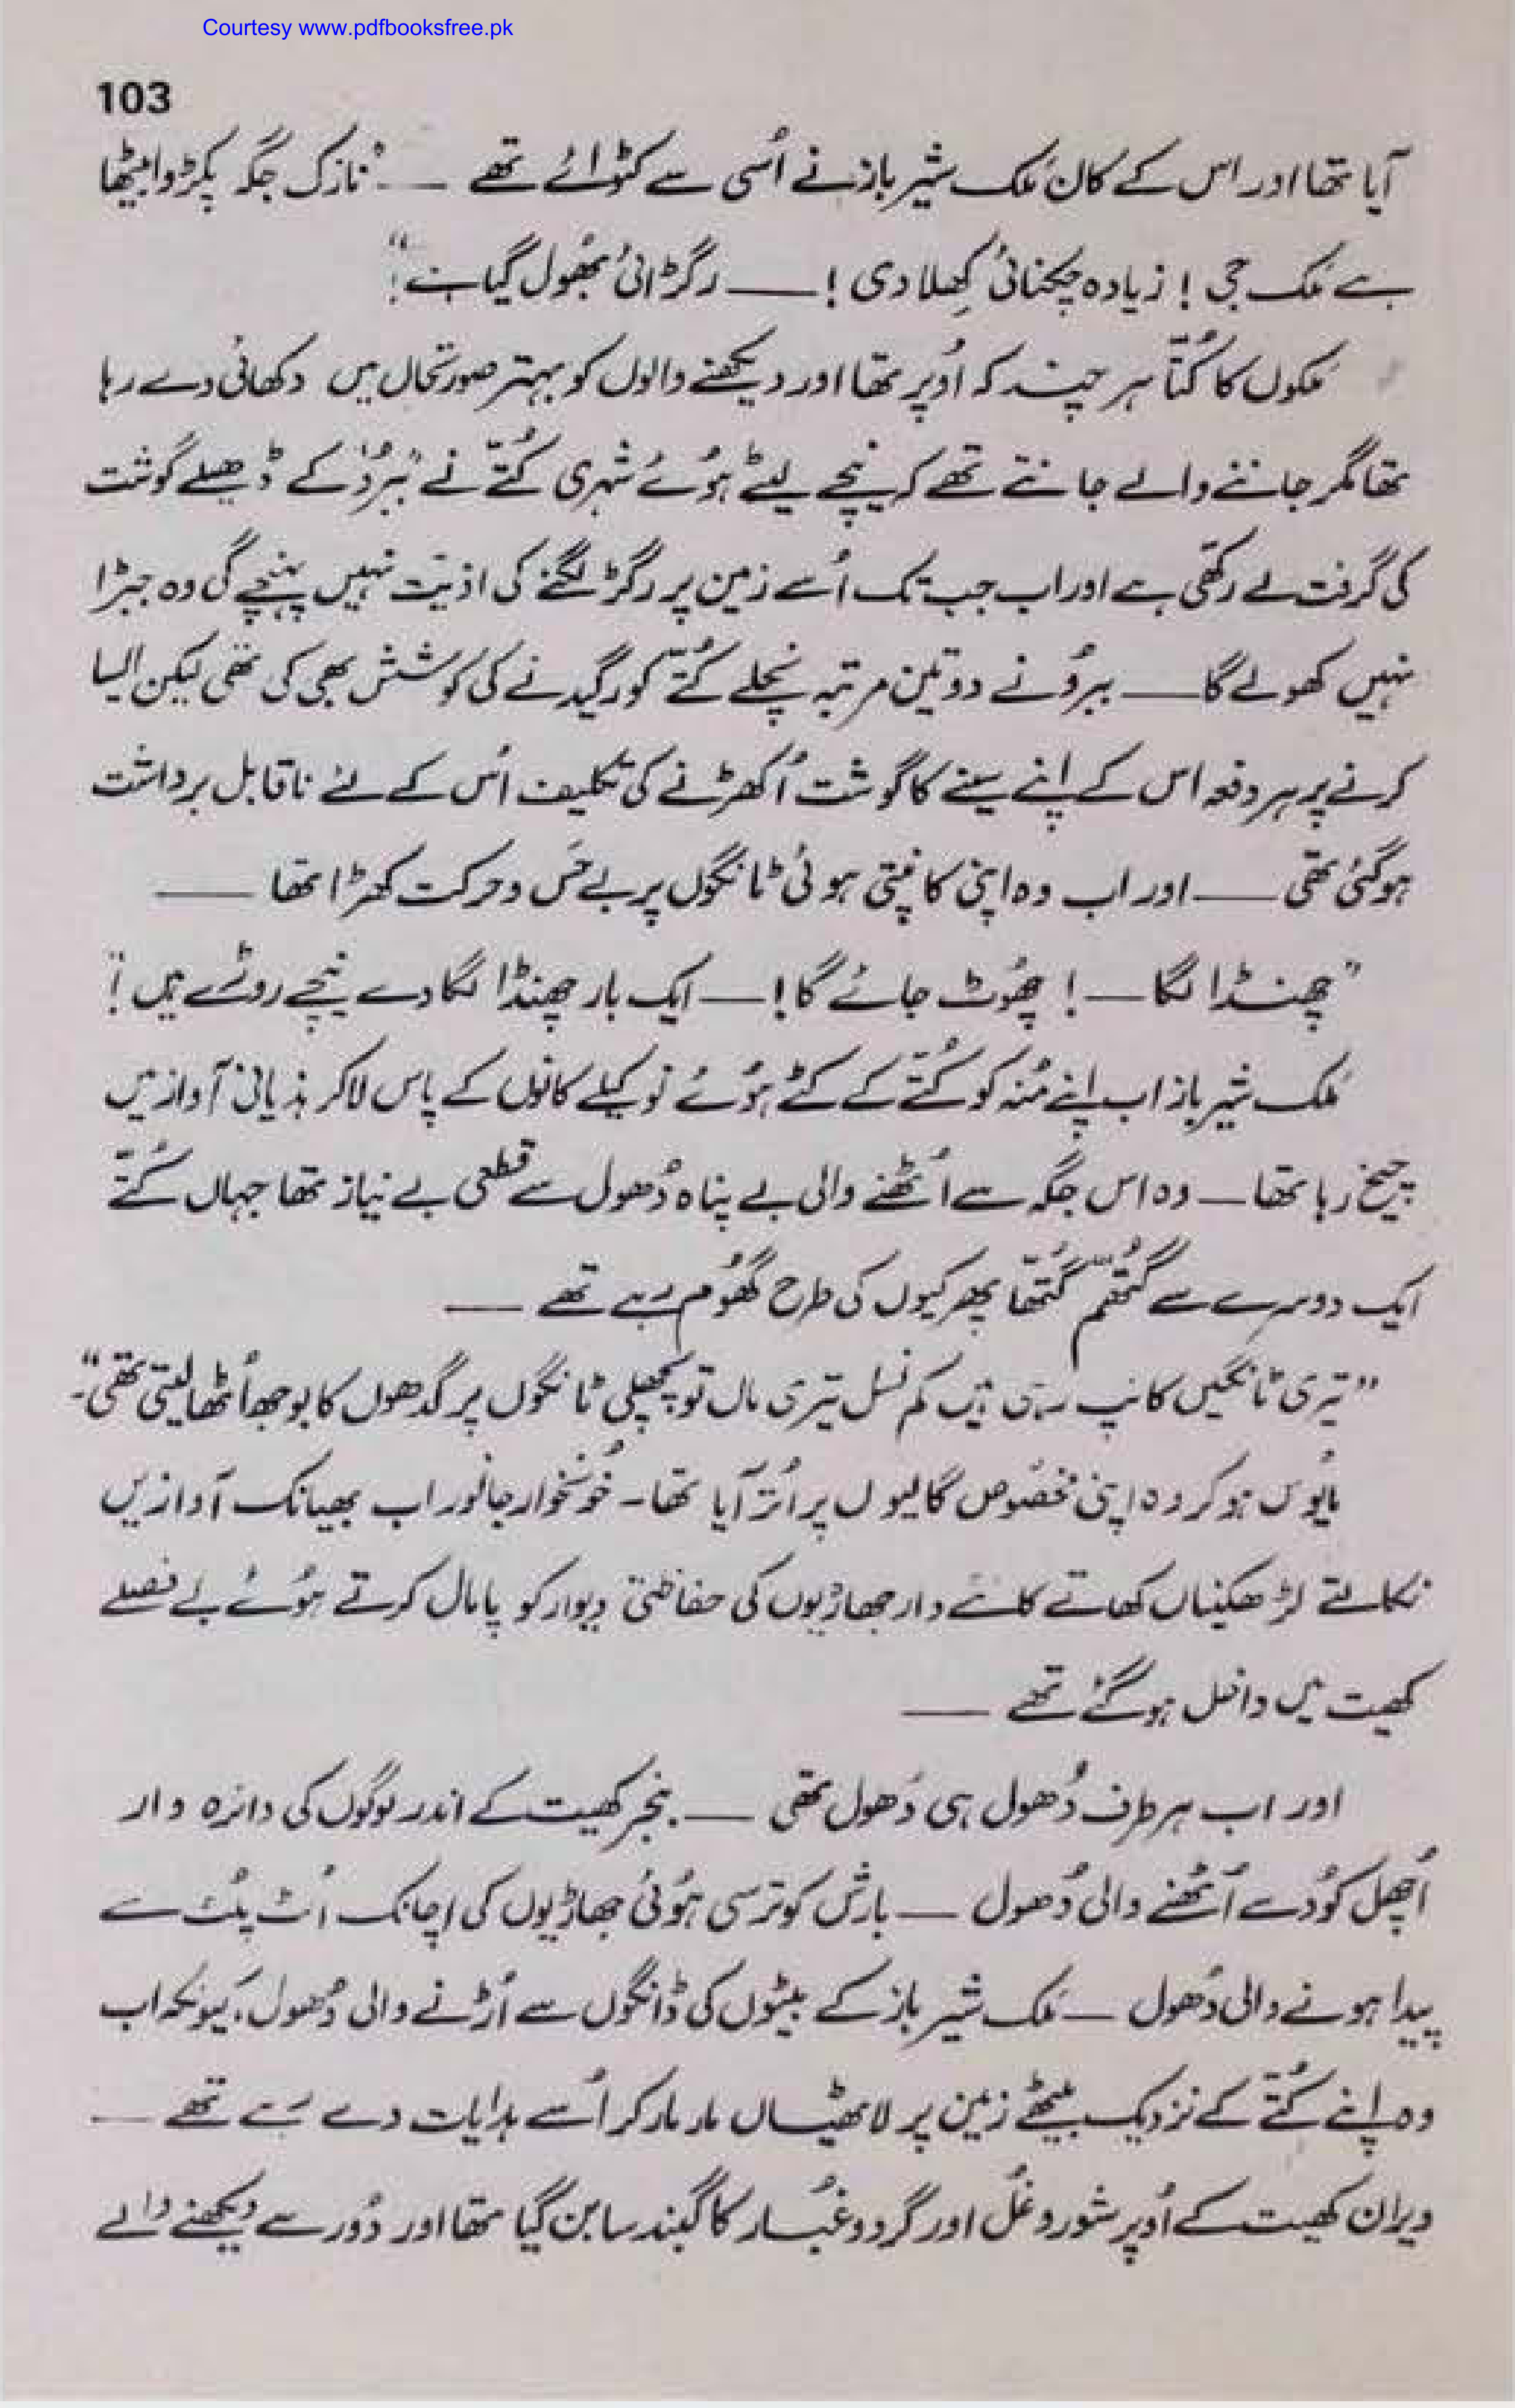 Courtesy www.pdfbooksfree.pk
103
آیا تھا اور اس کے کان مَلک شیر باز نے اُسی سے کٹوائے تھے —— "نازک جگہ پکڑوا بیٹھا
ہے مَلک جی ! زیادہ چکنائی کِھلا دی ! —— رگڑائی بُھول گیا ہے"!
مَلکوں کا کُتّا ہر چند کہ اُوپر تھا اور دیکھنے والوں کو بہتر صورتحال میں دکھائی دے رہا
تھا مگر جاننے والے جانتے تھے کہ نیچے لیٹے ہوُئے شہری کُتّے نے "بیروُ" کے ڈھیلے گوشت
کی گرفت لے رکھّی ہے اور اب جب تک اُسے زمین پر رگڑ لگنے کی اذیّت نہیں پہنچے گی وہ جبڑا
نہیں کھولے گا —— بیروُ نے دو تین مرتبہ نچلے کُتّے کو رگیدنے کی کوشش بھی کی تھی لیکن ایسا
کرنے پر ہر دفعہ اس کے اپنے سینے کا گوشت اُکھڑنے کی تکلیف اُس کے لئے ناقابل برداشت
ہو گئی تھی —— اور اب وہ اپنی کانپتی ہوئی ٹانگوں پر بے حَس و حرکت کھڑا تھا ——
"چھنڈا لگا —! چھُوٹ جائے گا! — ایک بار چھنڈا لگا دے نیچے روڑے ہیں !"
مَلک شیر باز اب اپنے مُنہ کو کُتّے کے کٹے ہوُئے نوکیلے کانوں کے پاس لا کر ہذیانی آوازیں
چیخ رہا تھا — وہ اس جگہ سے اُٹھنے والی بے پناہ دُھول سے قطعی بے نیاز تھا جہاں کُتّے
ایک دوسرے سے گُتھّم گُتھّا پھرکیوں کی طرح گھُوم رہے تھے ——
"تیری ٹانگیں کانپ رہی ہیں کم نسل تیری ماں تو پچھلی ٹانگوں پر گدھوں کا بوجھ اُٹھا لیتی تھی"۔
مایُوس ہو کر وہ اپنی مخصُوص گالیوں پر اُتر آیا تھا۔ خُونخوار جانور اب بھیانک آوازیں
نکالتے لڑھکنیاں کھاتے کانٹے دار جھاڑیوں کی حفاظتی دیوار کو پامال کرتے ہوُئے بے فصلے
کھیت میں داخل ہو گئے تھے ——
اور اب ہر طرف دُھول ہی دُھول تھی —— بنجر کھیت کے اندر لوگوں کی دائرہ وار
اُچھل کوُد سے اُٹھنے والی دُھول — بارش کو ترسی ہوُئی جھاڑیوں کی اچانک اُلٹ پلُٹ سے
پیدا ہونے والی دُھول — مَلک شیر باز کے بیٹوں کی ڈانگوں سے اُڑنے والی دُھول، کیونکہ اب
وہ اپنے کُتّے کے نزدیک بیٹھے زمین پر لاٹھیاں مار مار کر اُسے ہدایات دے رہے تھے —
ویران کھیت کے اُوپر شور و غُل اور گرد و غبُار کا گنبد سا بن گیا تھا اور دُور سے دیکھنے والے